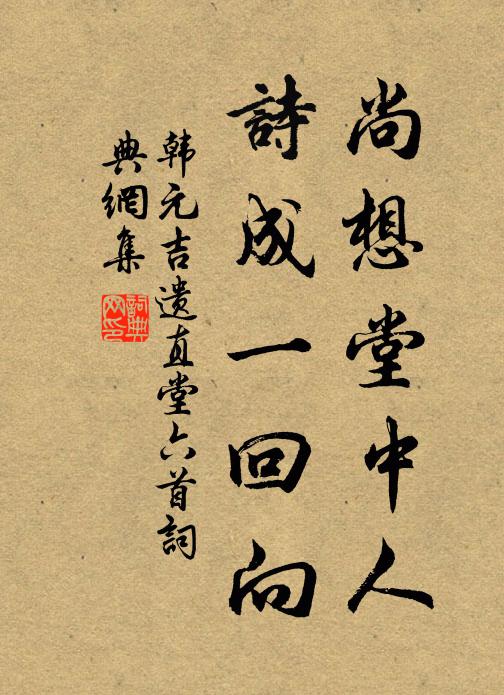 尚想堂中人
詩成一回向
韩元吉遗直堂六首詞
典網集
詞典网印